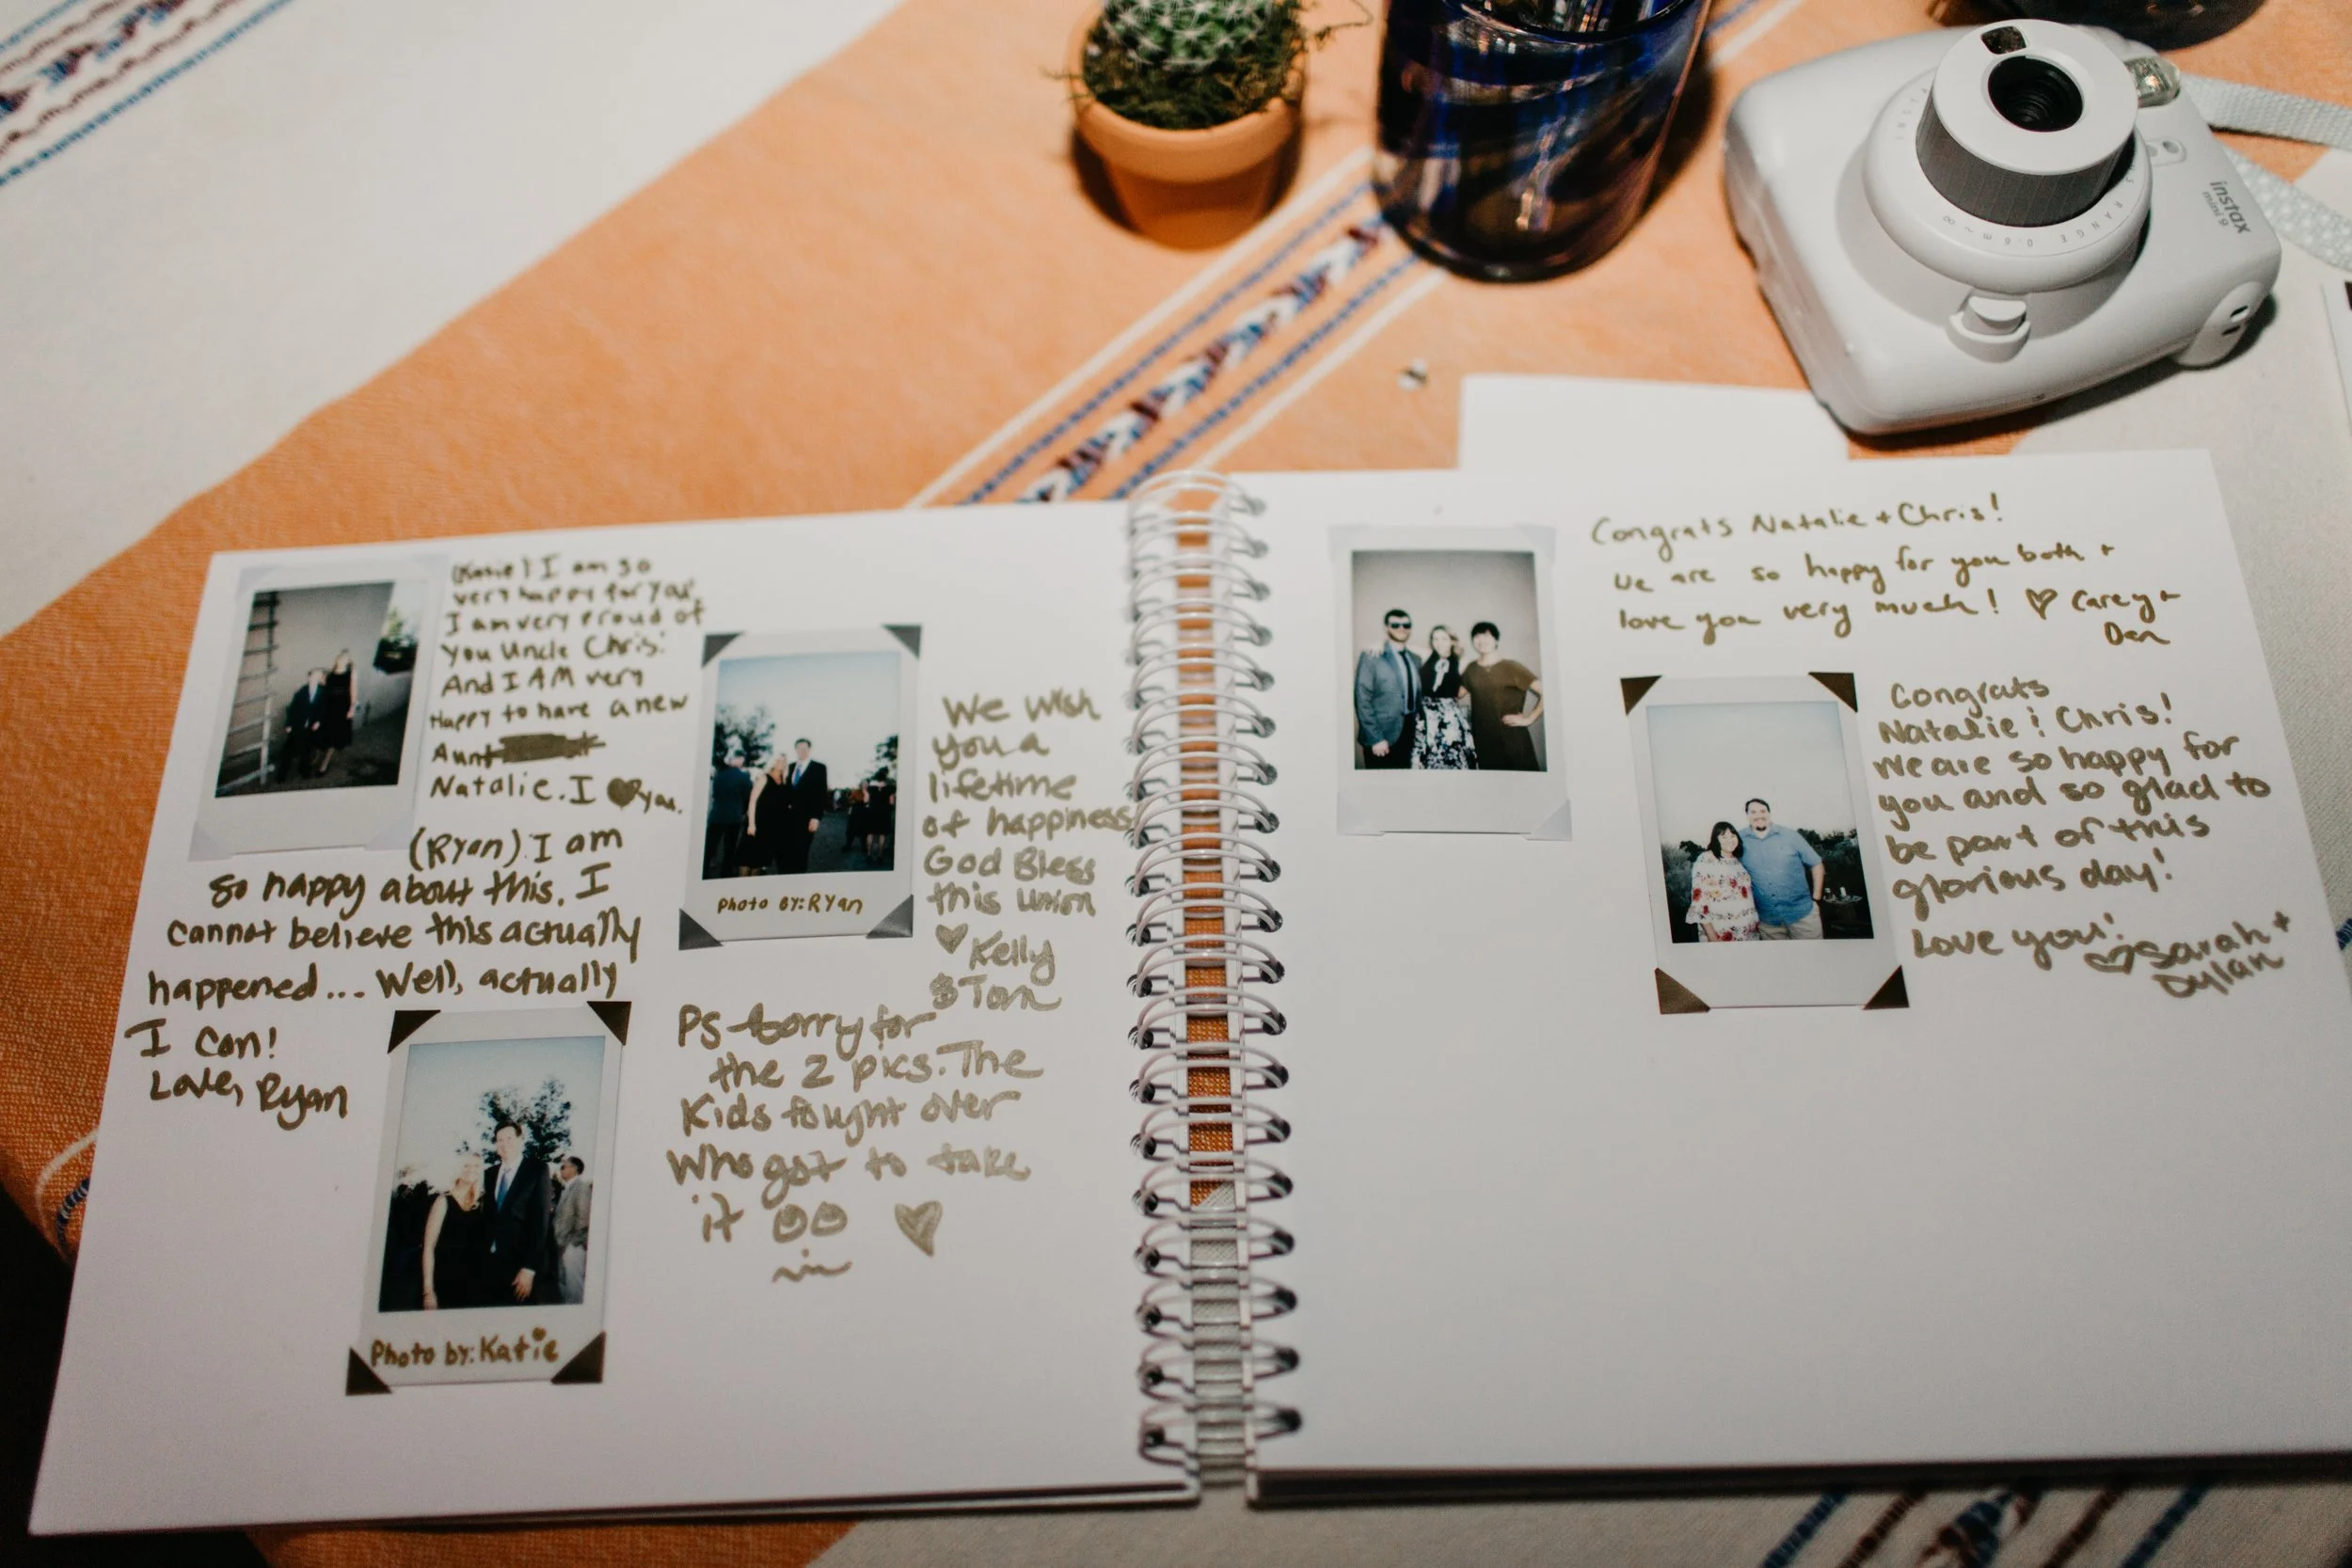 (Katie) I am so
very happy for you.
I am very Proud of
you Uncle Chris!
And I AM very
Happy to have a new
Aunt
Natalie. I ♥ you.
(Ryan) I am
so happy about this. I
cannot believe this actually
happened... Well, actually
I can!
Love, Ryan
Photo by: Katie
Photo BY: RYan
We wish
you a
lifetime
of happiness
God Bless
this Union
♡ Kelly
& Tom
PS Sorry for
the 2 pics. The
Kids fought over
who got to take
it ☺☺ ♡
Congrats Natalie + Chris!
We are so happy for you both +
love you very much! ♡ Carey +
Dan
Congrats
Natalie & Chris!
We are so happy for
you and so glad to
be part of this
glorious day!
Love you!
♡ Sarah +
Dylan
instax
mini 9
RANGE 0.6m~∞